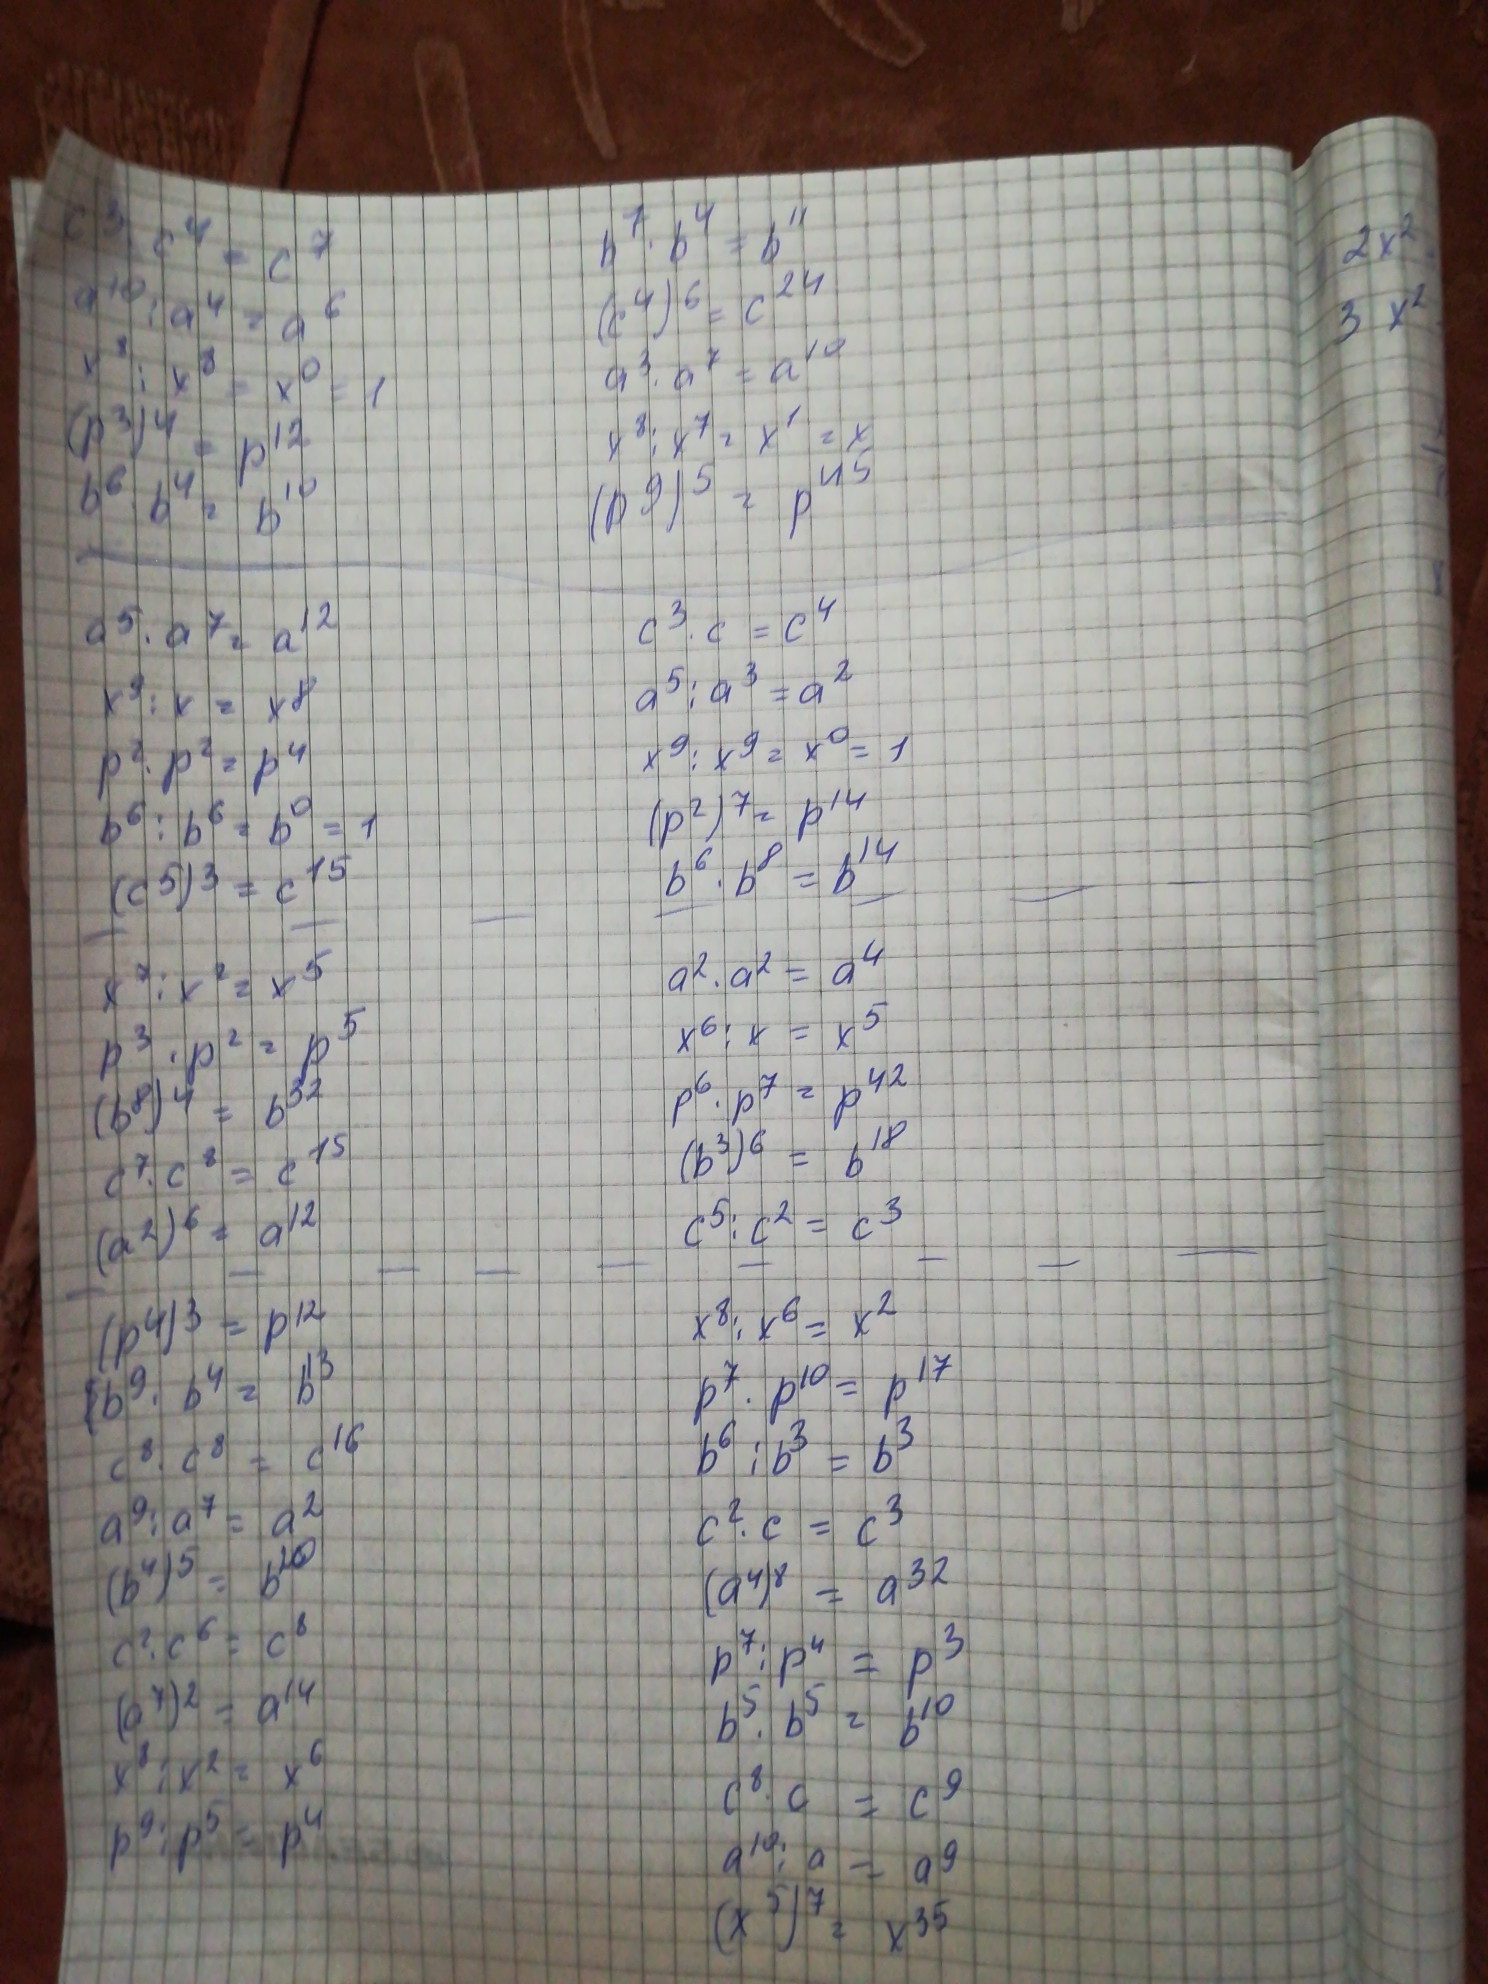 c³ · c⁴ = c⁷
a¹⁰ : a⁴ = a⁶
x⁸ : x⁸ = x⁰ = 1
(p³)⁴ = p¹²
b⁶ · b⁴ = b¹⁰
b⁷ · b⁴ = b¹¹
(c⁴)⁶ = c²⁴
a³ · a⁷ = a¹⁰
x⁸ : x⁷ = x¹ = x
(p⁹)⁵ = p⁴⁵
a⁵ · a⁷ = a¹²
x⁹ : x = x⁸
p² · p² = p⁴
b⁶ : b⁶ = b⁰ = 1
(c⁵)³ = c¹⁵
c³ · c = c⁴
a⁵ : a³ = a²
x⁹ : x⁹ = x⁰ = 1
(p²)⁷ = p¹⁴
b⁶ · b⁸ = b¹⁴
x⁷ : x² = x⁵
p³ · p² = p⁵
(b⁸)⁴ = b³²
c⁷ · c⁸ = c¹⁵
(a²)⁶ = a¹²
a² · a² = a⁴
x⁶ : x = x⁵
p⁶ · p⁷ = p⁴²
(b³)⁶ = b¹⁸
c⁵ : c² = c³
(p⁴)³ = p¹²
b⁹ · b⁴ = b¹³
c⁸ · c⁸ = c¹⁶
a⁹ : a⁷ = a²
(b⁴)⁵ = b²⁰
c² · c⁶ = c⁸
(a⁷)² = a¹⁴
x⁸ : x² = x⁶
p⁹ : p⁵ = p⁴
x⁸ : x⁶ = x²
p⁷ · p¹⁰ = p¹⁷
b⁶ : b³ = b³
c² · c = c³
(a⁴)⁸ = a³²
p⁷ : p⁴ = p³
b⁵ · b⁵ = b¹⁰
c⁸ · c = c⁹
a¹⁰ : a = a⁹
(x⁵)⁷ = x³⁵
2x²
3 x²